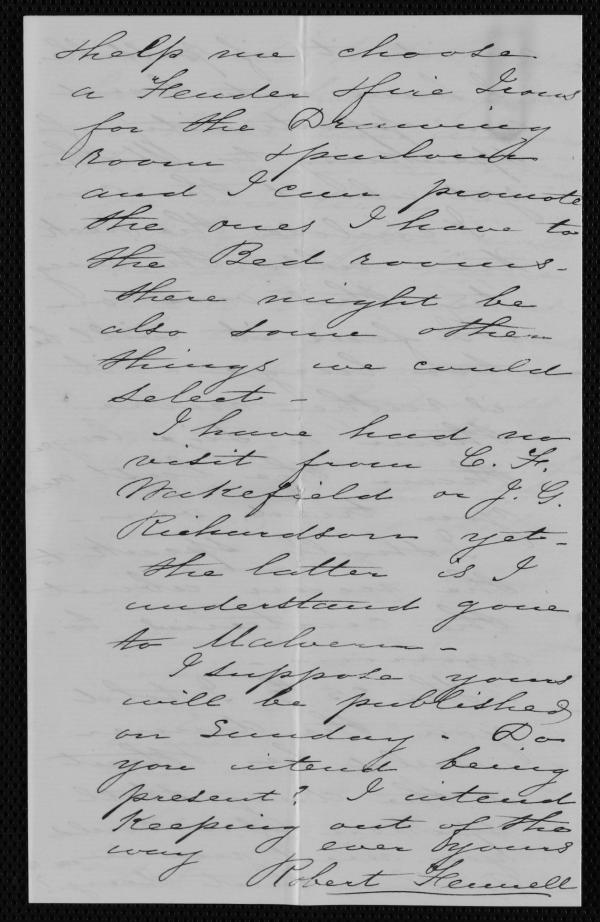 & help me choose
a Fender & fire Irons
for the Drawing
room & parlour
and I can promote
the ones I have to
the Bed rooms -
there might be
also some other
things we could
select -
I have had no
visit from C. F.
Wakefield or J. G.
Richardson yet -
the latter is I
understand gone
to Malvern -
I suppose yours
will be published
on Sunday - Do
you intend being
present? I intend
Keeping out of the
way ever yours
Robert Fennell